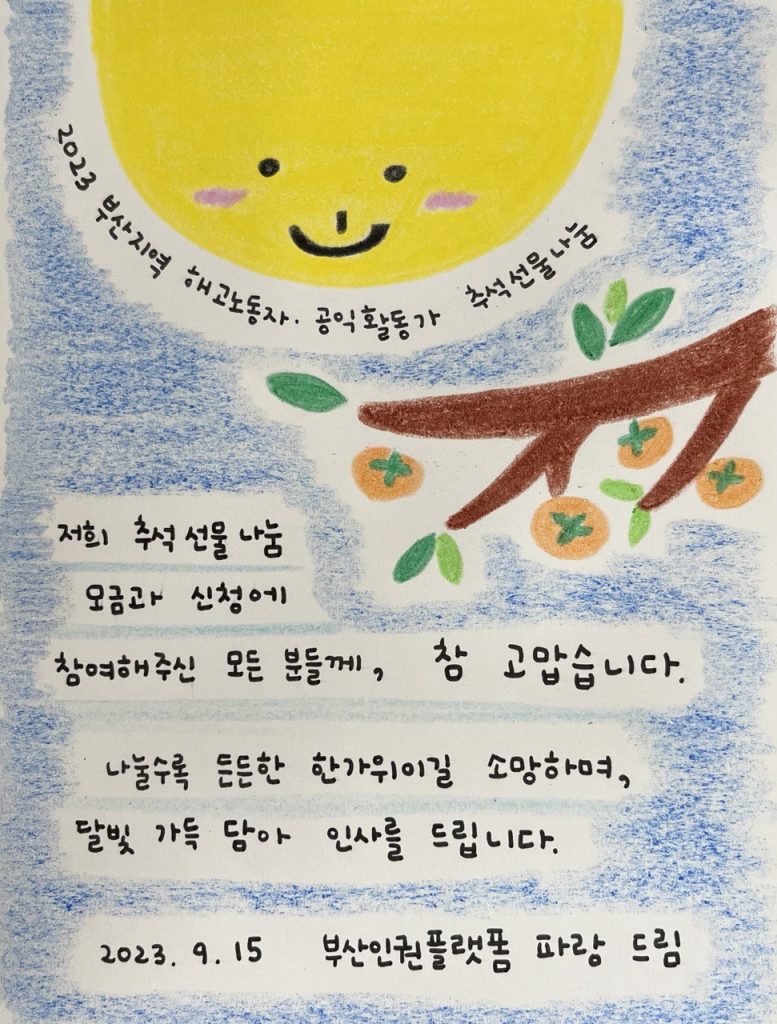 2023 부산지역 해고노동자·공익활동가 추석선물나눔
저희 추석 선물 나눔
모금과 신청에
참여해주신 모든 분들께, 참 고맙습니다.
나눌수록 든든한 한가위이길 소망하며,
달빛 가득 담아 인사를 드립니다.
2023. 9. 15 부산인권플랫폼 파랑 드림